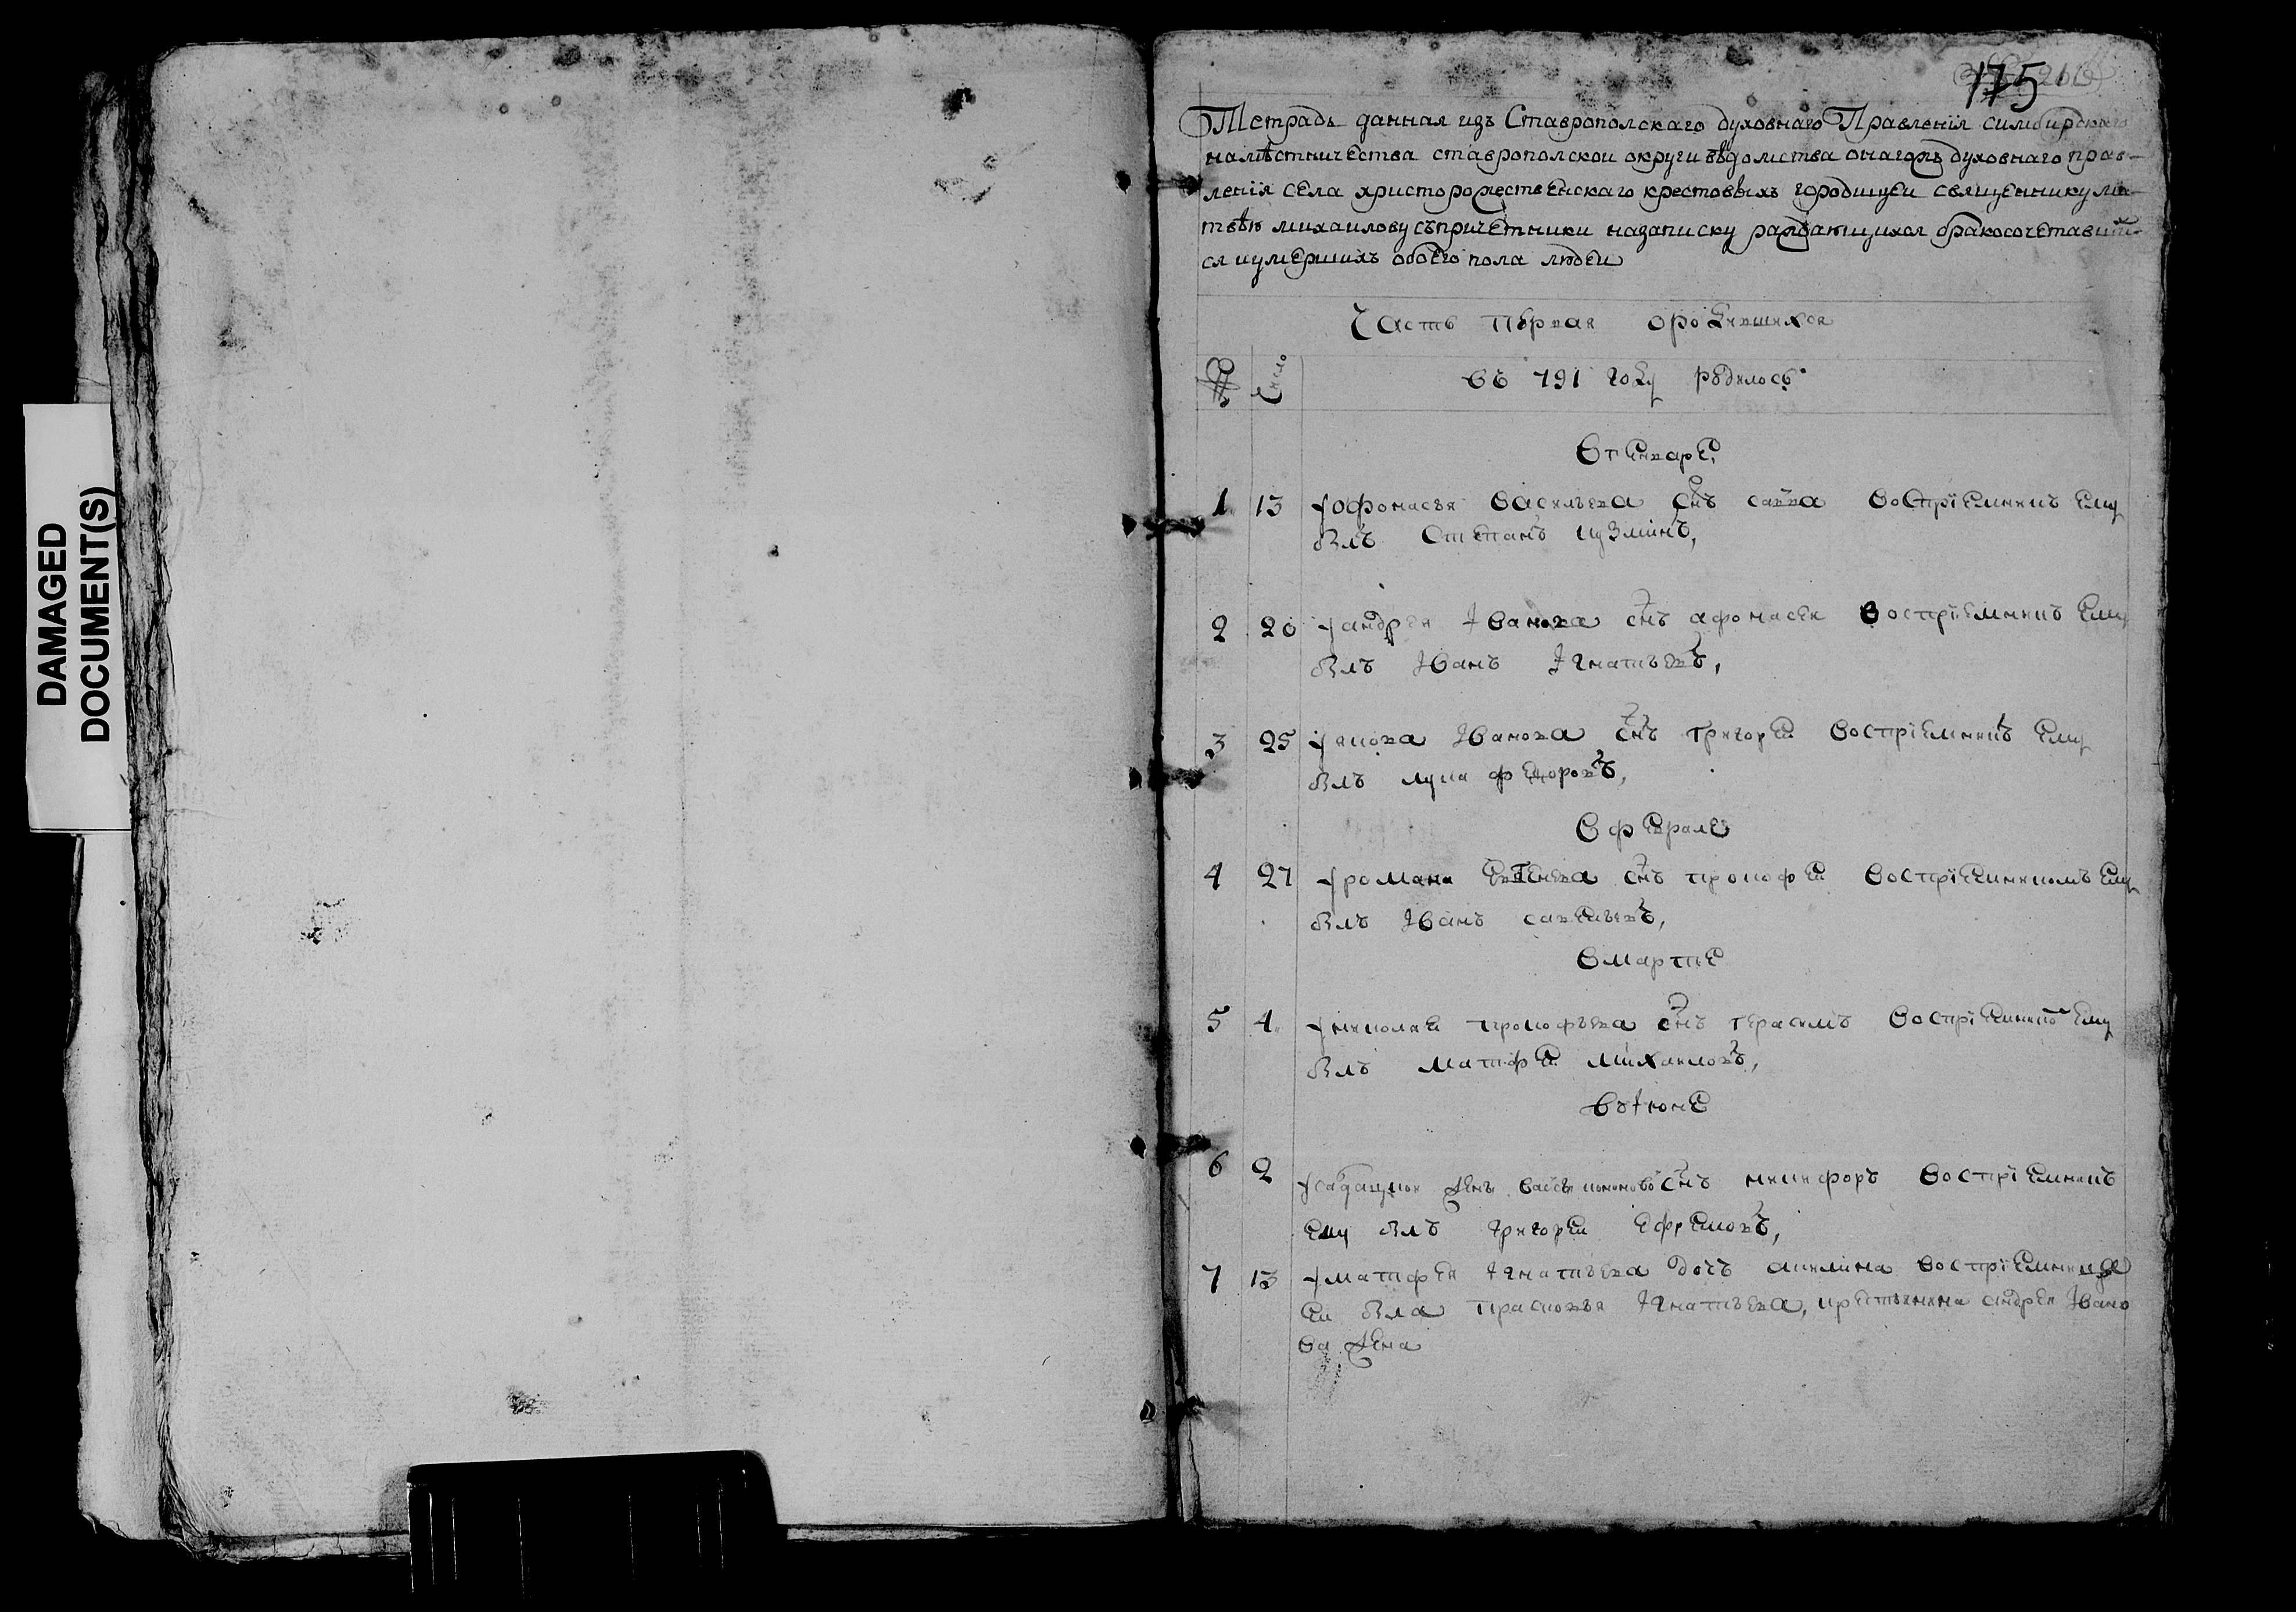 DAMAGED
DOCUMENT(S)
175
Тетрадь данная изъ Ставрополскаго духовнаго Правленїя симбирскаго
намѣстничества ставрополской округи вѣдомства онагожъ духовнаго прав-
ленїя села христорожественскаго крестовыхъ городищеи священнику ма-
твѣю михаилову съпричетники назаписку раждающихся бракосочетавших-
ся иумершихъ обоего пола людеи
Часть первая ородившихся
№ Число
въ 791 году родилось
Вгенваре
1 13 уофонасья васильева снъ савва воспрїемникъ ему
былъ степанъ кузминъ,
2 20 уандрея Iванова снъ афонасеи воспрїемникъ ему
былъ Iванъ Iгнатьевъ,
3 25 уякова Iванова снъ григореи воспрїемникъ ему
былъ лука федоровъ,
вфеврале
4 27 уромана снъ прокофеи воспрїемникомъ ему
былъ Iванъ савельевъ,
вмарте
5 4 униколая прокофьева снъ герасимъ воспрїемникъ ему
былъ матфеи михаиловъ,
въIюне
6 2 снъ никифоръ воспрїемникъ
ему былъ григореи ефремовъ,
7 13 уматфея Iгнатьева дочъ акилина воспрїемница
еи была прасковья Iгнатьева, крестьянина андрея Iвано
ва жена